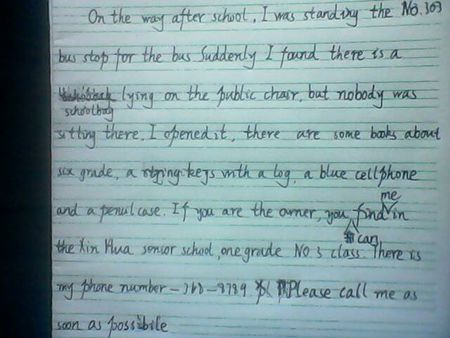 On the way after school, I was standing the NO.303
bus stop for the bus Suddenly I found there is a
schoolbag lying on the public chair, but nobody was
sitting there. I opened it, there are some books about
six grade, a string keys with a log, a blue cellphone
and a pencil case. If you are the owner, you can find me in
the Xin Hua senior school, one grade NO.3 class There is
my phone number - - 8789 Please call me as
soon as possibile